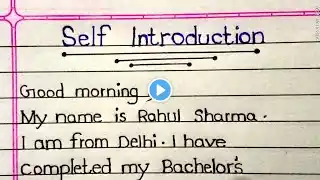 Self Introduction
Good morning,
My name is Rahul Sharma.
I am from Delhi. I have
completed my Bachelor's